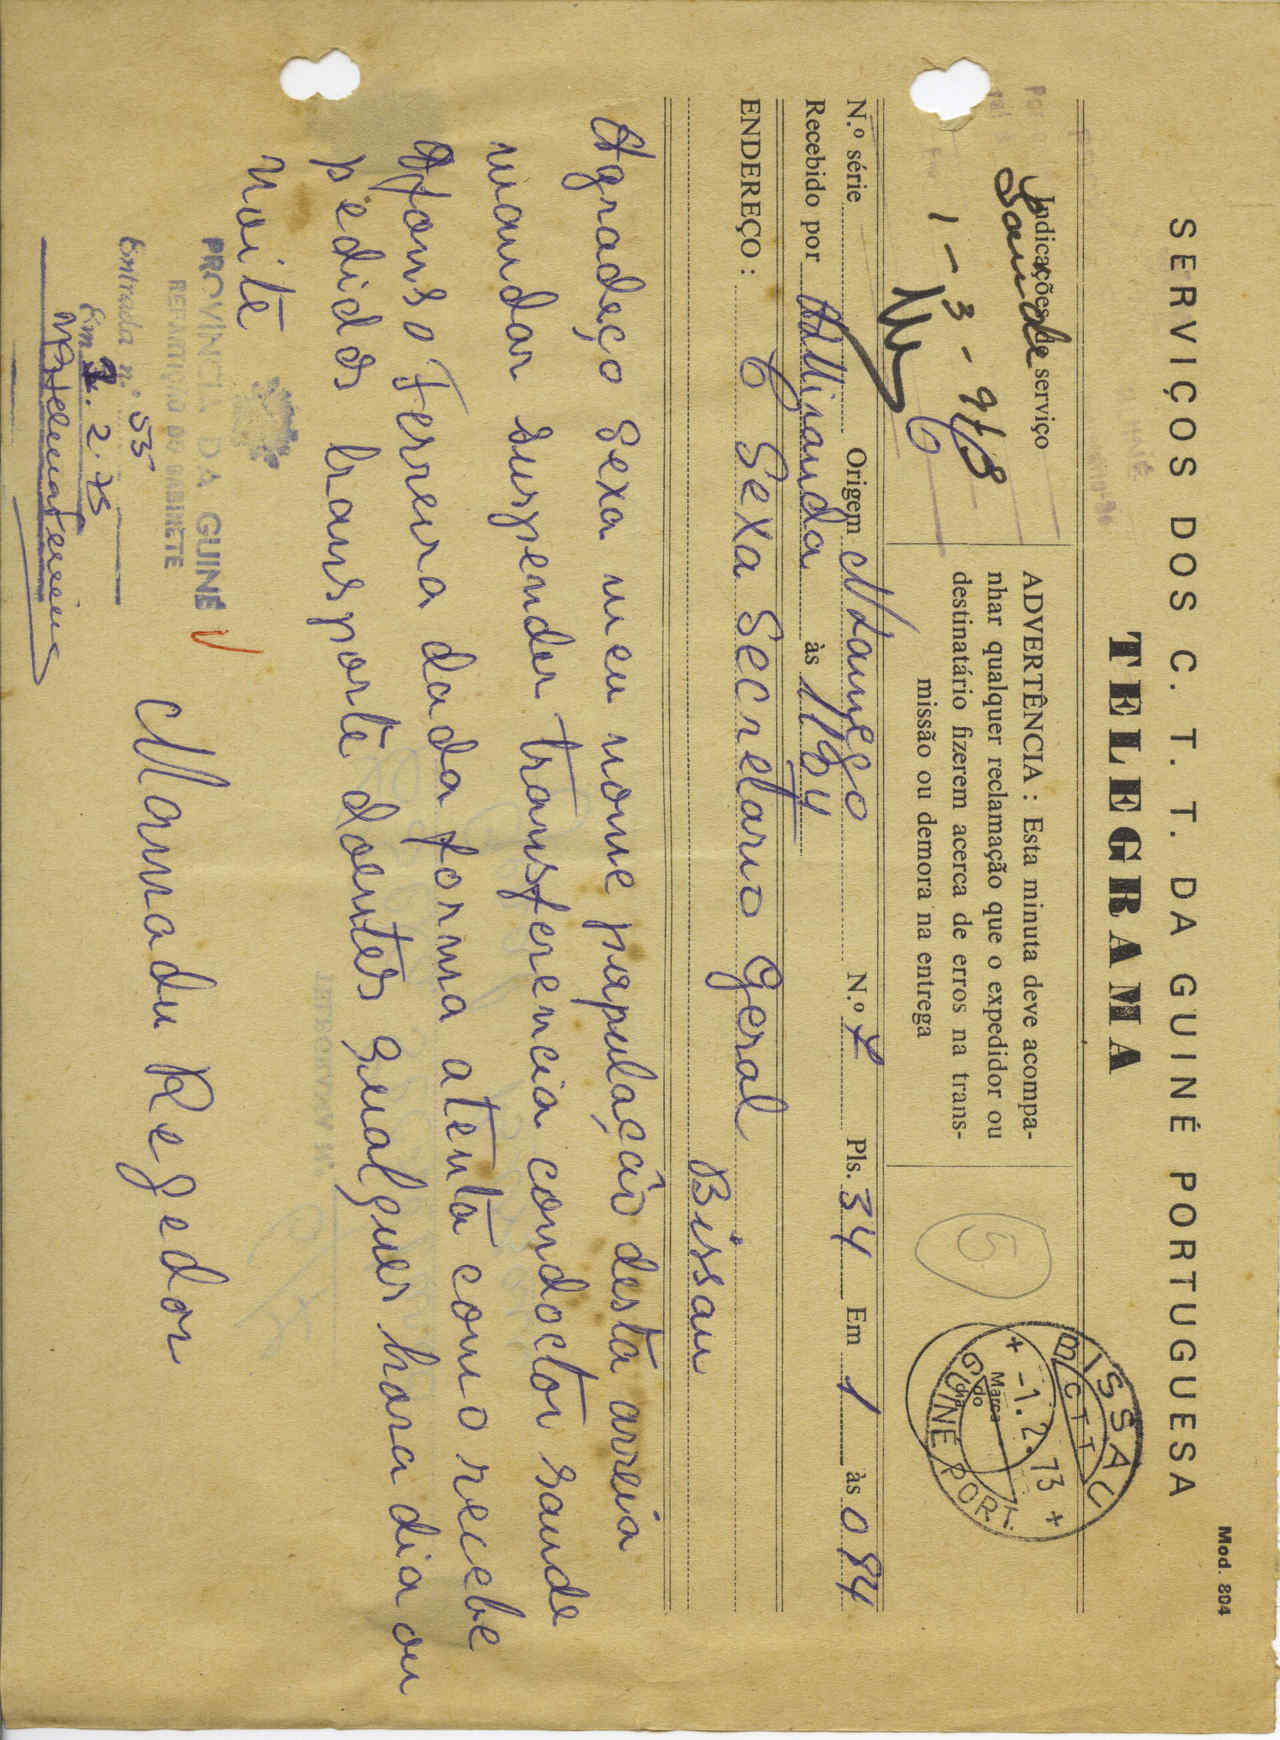 Mod. 804
SERVIÇOS DOS C. T. T. DA GUINÉ PORTUGUESA
TELEGRAMA
Indicações de serviço
Saude
1-3-
ADVERTÊNCIA: Esta minuta deve acompa-
nhar qualquer reclamação que o expedidor ou
destinatário fizerem acerca de erros na trans-
missão ou demora na entrega
5
BISSAU
CTT
-1.2.73
Marca
do
dia
GUINÉ PORT.
N.º série Origem N.º Pls. 34 Em 1 às 084
Recebido por AdMiranda às
ENDEREÇO: Sexa Secretario Geral
Bissau
Agradeço Sexa meu nome papulação desta arreia
mandar suspender transferencia comdoctor saude
Afonso Ferreira dada forma atenta como recebe
pedidos transporte doentes qualquer hora dia ou
noite
Mamadu Regedor
PROVINCIA DA GUINÉ
REPARTIÇÃO DO GABINETE
Entrada n.º 53
Em 2.2.73